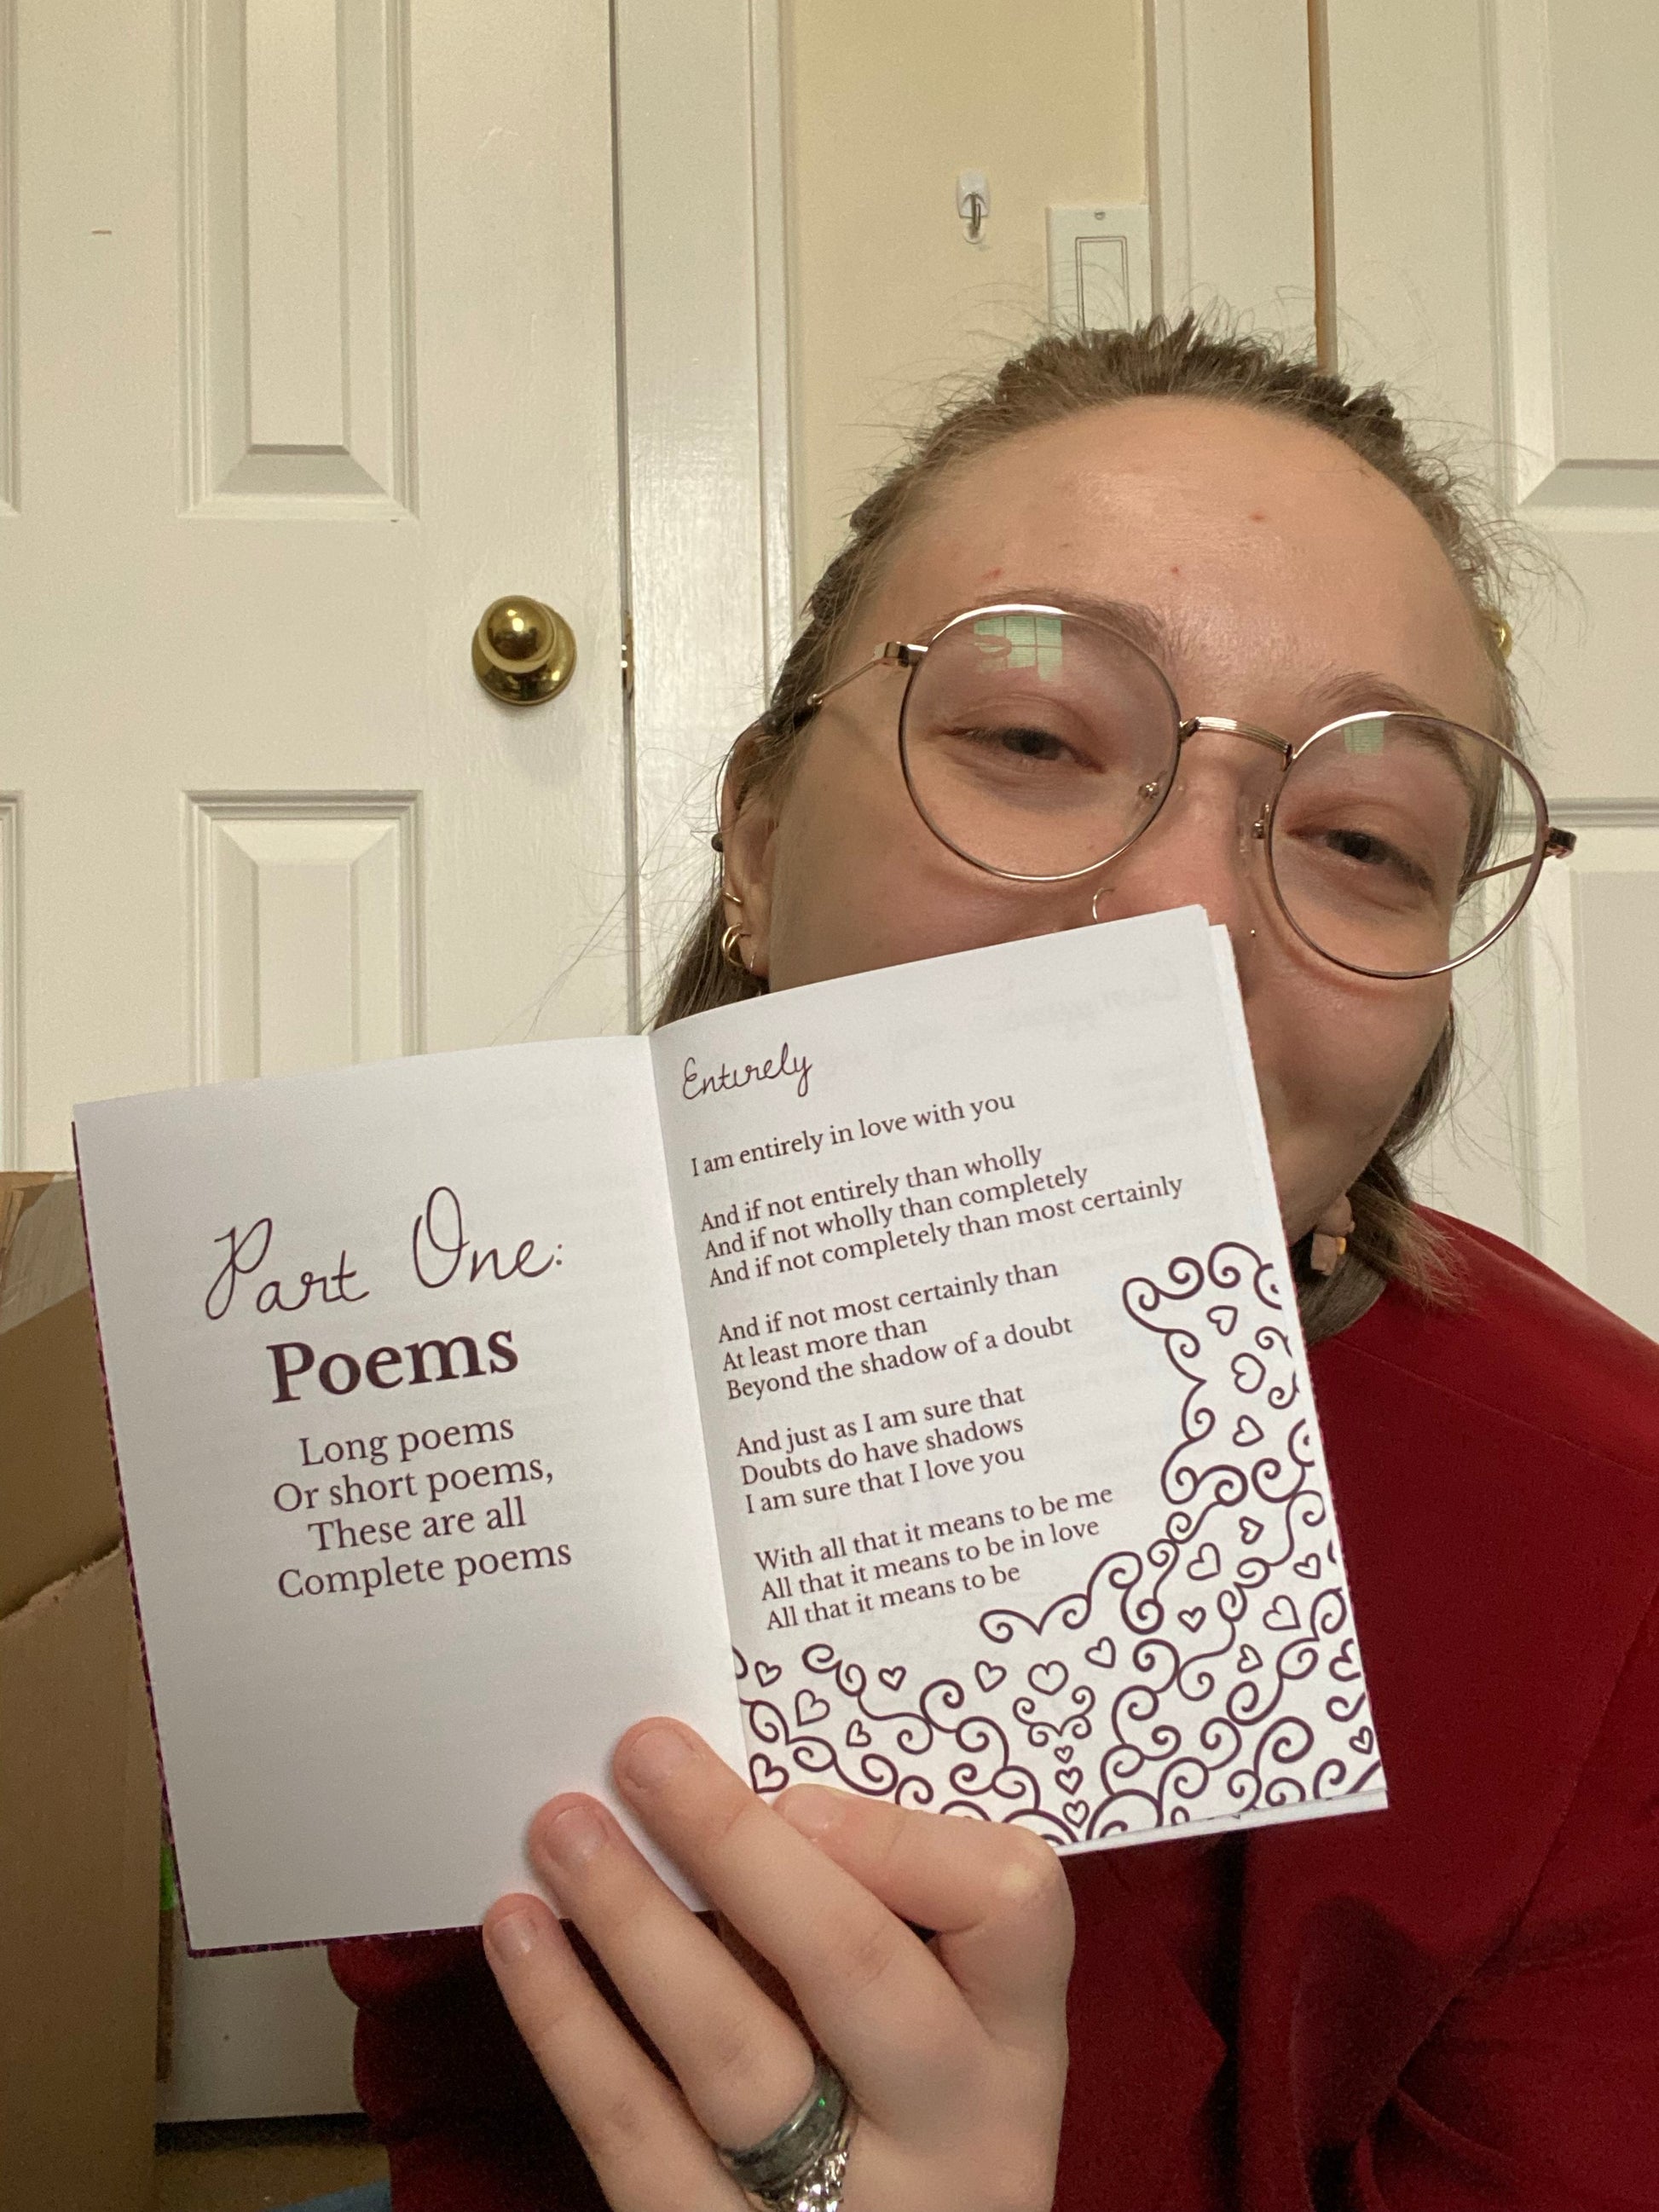 Part One:
Poems
Long poems
Or short poems,
These are all
Complete poems
Entirely
I am entirely in love with you
And if not entirely than wholly
And if not wholly than completely
And if not completely than most certainly
And if not most certainly than
At least more than
Beyond the shadow of a doubt
And just as I am sure that
Doubts do have shadows
I am sure that I love you
With all that it means to be me
All that it means to be in love
All that it means to be